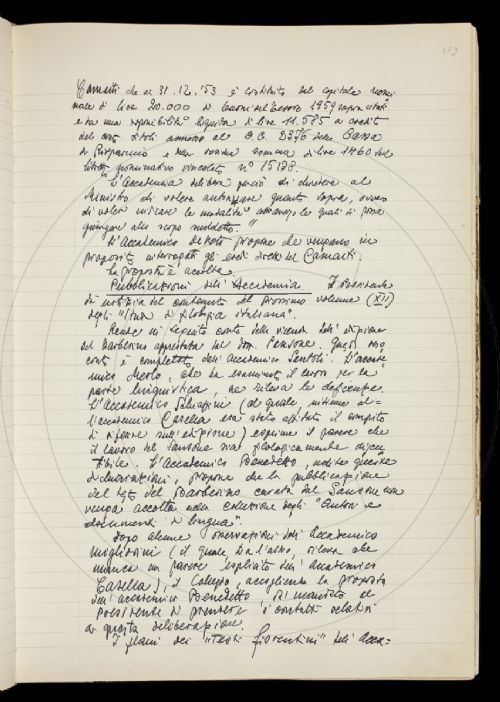 109
Camaiti che al 31.12.'53 è costituito dal capitale nomi
nale di lire 20.000 in buoni del tesoro 1959 sopra citati
e da una disponibilità liquida di lire 11.585 a credito
del conto titoli annesso al C.C. 2376 della Cassa
di Risparmio e della somma di lire 1460 sul
libretto nominativo vincolato n° 15178.
"L'Accademia delibera perciò di chiedere al
Ministro di volere autorizzare quanto sopra, ovvero
di voler indicare le modalità attraverso le quali si possa
giungere allo scopo suddetto."
L'Accademico Devoto propone che vengano in
proposito interrogati gli eredi del Camaiti.
La proposta è accolta.
Pubblicazioni dell'Accademia. Il Presidente
dà notizia del contenuto del prossimo volume (XII)
degli "Studi di filologia italiana".
Rende in seguito conto della vicenda dell'edizione
del Barberino apprestata dal dott. Sansone. Questo reso
conto è completato dall'Accademico Santoli. L'accade
mico che ha esaminato il lavoro per la
parte linguistica, ne rileva le deficienze.
L'Accademico Schiaffini (al quale, insieme al=
l'accademico Casella era stato affidato il compito
di riferire sull'edizione) esprime il parere che
il lavoro del Sansone sia filologicamente discu
tibile. L'Accademico Benedetto, udite queste
dichiarazioni, propone che la pubblicazione
del testo del Barberino curata dal Sansone non
venga accolta nella collezione degli "Autori e
documenti di lingua".
Dopo alcune osservazioni dell'Accademico
Migliorini (il quale, tra l'altro, rileva che
manca un parere esplicito dell'Accademico
Casella), il Collegio, accogliendo la proposta
dell'accademico Benedetto, dà mandato al
Presidente di prendere i contatti relativi
a questa deliberazione.
I piani dei "Testi fiorentini" dell'Acca=